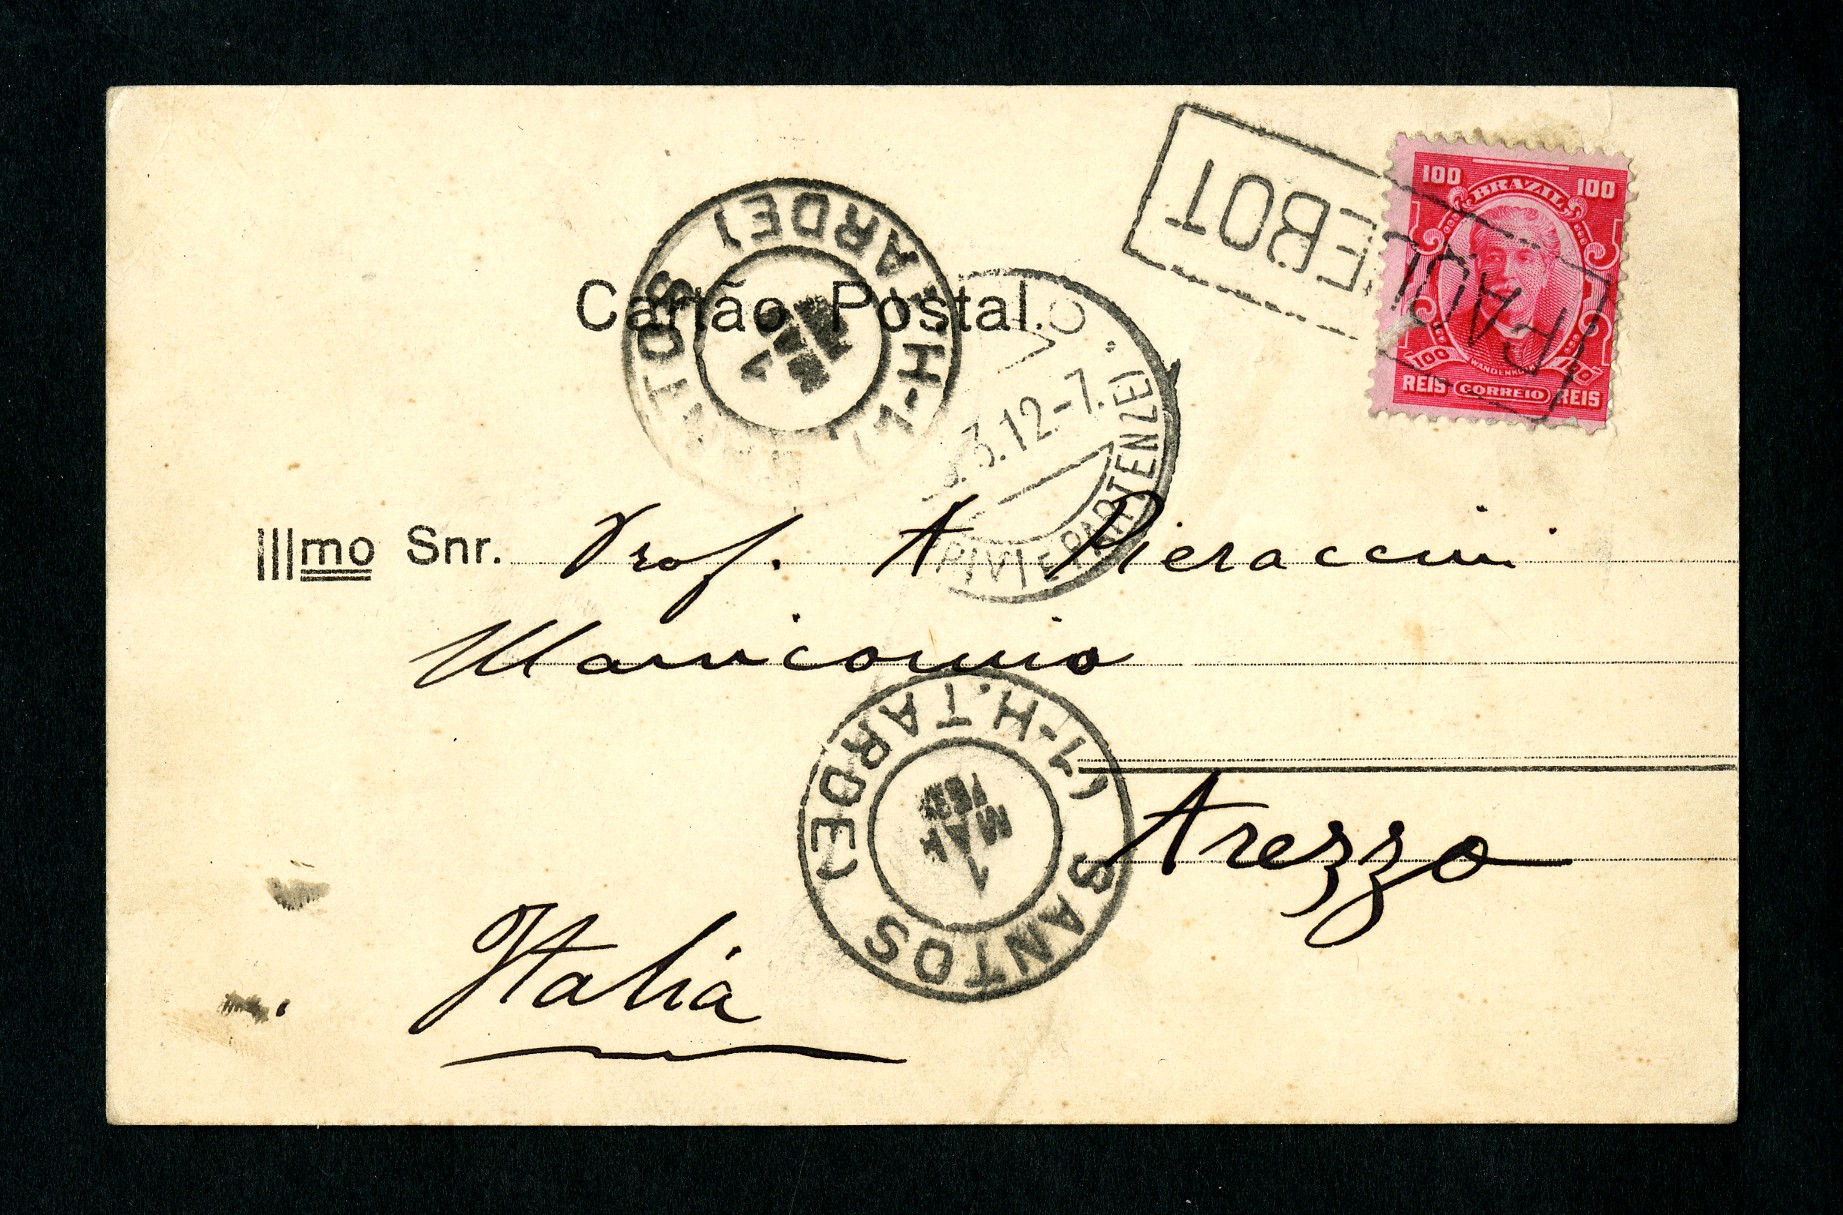 PAQUEBOT
100 100
BRAZIL
100 100
WANDENKOLK
REIS CORREIO REIS
SANTOS (1-H.TARDE)
Cartão Postal.
3.12-7.
ARRIVI E PARTENZE
Illmo Snr. Prof. A Pieraccini
Manicomio
SANTOS (1-H.TARDE)
1
MAR
Arezzo
Italia